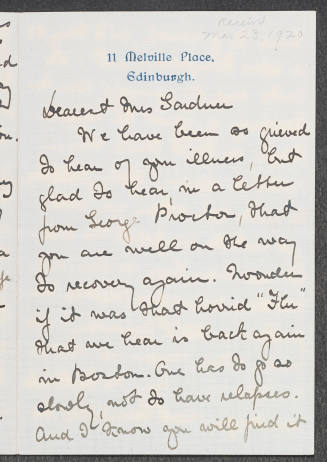 Received
Mar 23, 1920
11 Melville Place,
Edinburgh.
Dearest Mrs Gardner
We have been so grieved
to hear of your illness, but
glad to hear, in a letter
from George Proctor, that
you are well on the way
to recovery again. I wonder
if it was that horrid "Flu"
that we hear is back again
in Boston. One has to go so
slowly, not to have relapses.
And I know you will find it